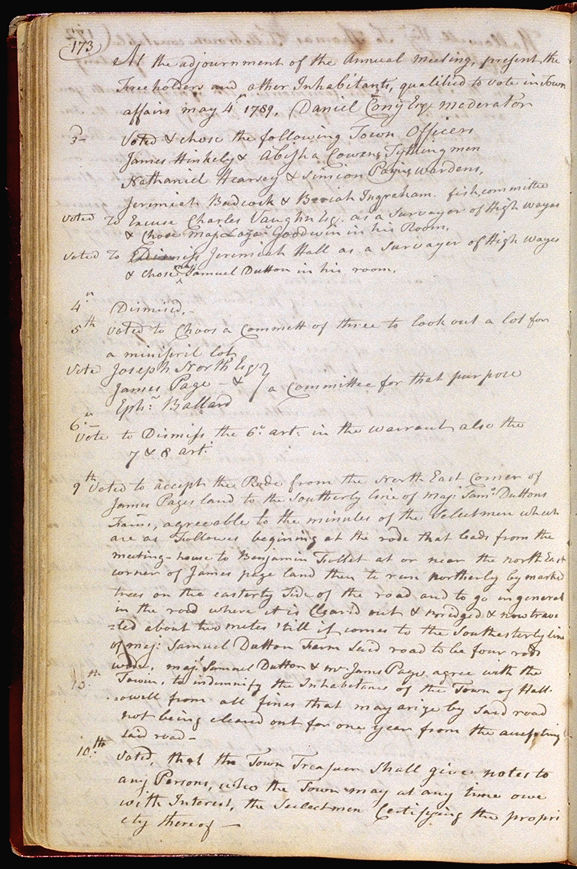 173
At the adjournment of the Annual meeting, present the
Freeholders and other Inhabitants, qualified to vote in Town
affairs may 4th 1789, Daniel Cony Esqr moderator
3d Voted & chose the following Town Officers
James Hinkely & Abisha Cowen Tythingmen
Nathaniel Hearsey & Simeon Payne wardens,
Jeremiah Badcock & Beriah Ingraham. fish committee
voted to Excuse Charles Vaughn Esq. as a Survayor of High wayes
& Chose maj. Lazas Goodwin in his Room,
voted to Jeremiah Hall as a Survayer of High Wayes
& chose maj Samuel Dutton in his room,
4th Dismised,
5th Voted to Choos a Committ of three to look out a lot for
a minis lot,
Vote Joseph North Esqr
James Page - & } a Committee for that purpose
Ephm Ballard
6th
Vote to Dismiss the 6th art. in the warrant, also the
7 & 8 art.
9th Voted to accept the Rode from the North East Corner of
James Pages land to the Southerly line of maj. Saml Duttons
Farm, agreeable to the minutes of the Selectmen which
are as Follows, begining at the rode that leads from the
meeting-house to Benjamin at or near the north East
corner of James page land then to run northerly by marked
trees on the easterly Side of the road and to go in general
in the road where it is Cleared out & bridged & now trave
=led about two miles till it comes to the Southesterly line
of maj: Samuel Dutton Farm Said road to be four rods
wide, maj. Samuel Dutton & mr Jams Page. agree with the
Town, to indemnify the Inhabetance of the Town of Hall-
owell from all fines that may arize by Said road
not being cleared out for one year from the accepting
said road -
10th Voted, that the Town Treasurer Shall give notes to
any Persons, who the Town may at any time owe
with Interest, the Selectmen Certifying the propri
ety thereof —